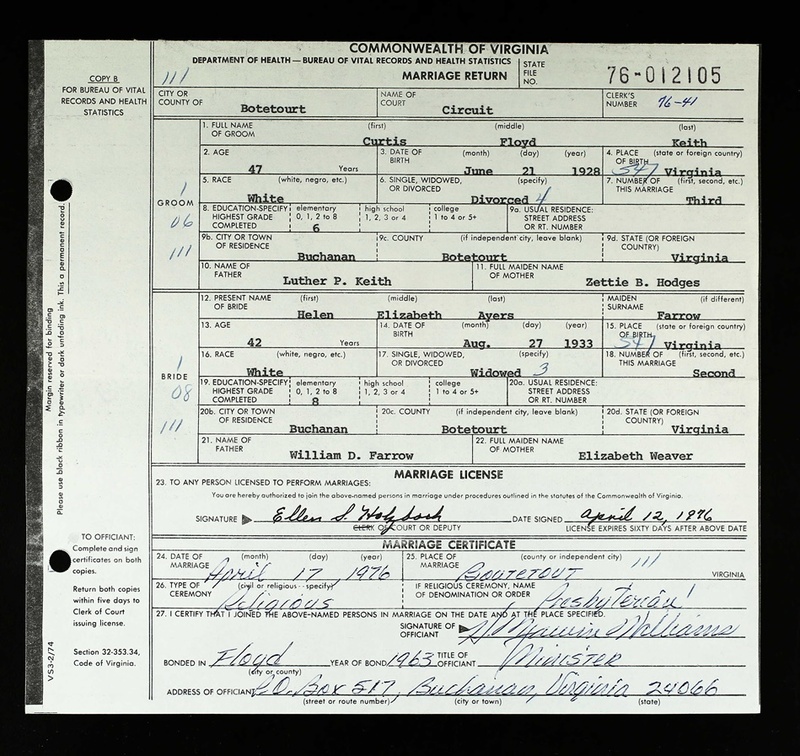 COMMONWEALTH OF VIRGINIA
DEPARTMENT OF HEALTH — BUREAU OF VITAL RECORDS AND HEALTH STATISTICS
MARRIAGE RETURN
STATE FILE NO. 76-012105
COPY B
FOR BUREAU OF VITAL RECORDS AND HEALTH STATISTICS
111
CITY OR COUNTY OF Botetourt
NAME OF COURT Circuit
CLERK'S NUMBER 76-41
GROOM
1
06
111
1. FULL NAME OF GROOM (first) Curtis (middle) Floyd (last) Keith
2. AGE 47 Years
3. DATE OF BIRTH (month) June (day) 21 (year) 1928
4. PLACE OF BIRTH (state or foreign country) 541 Virginia
5. RACE (white, negro, etc.) White
6. SINGLE, WIDOWED, OR DIVORCED (specify) Divorced 4
7. NUMBER OF THIS MARRIAGE (first, second, etc.) Third
8. EDUCATION-SPECIFY HIGHEST GRADE COMPLETED elementary 0, 1, 2 to 8 6 high school 1, 2, 3 or 4 college 1 to 4 or 5+
9a. USUAL RESIDENCE: STREET ADDRESS OR RT. NUMBER
9b. CITY OR TOWN OF RESIDENCE Buchanan
9c. COUNTY (if independent city, leave blank) Botetourt
9d. STATE (OR FOREIGN COUNTRY) Virginia
10. NAME OF FATHER Luther P. Keith
11. FULL MAIDEN NAME OF MOTHER Zettie B. Hodges
BRIDE
1
08
111
12. PRESENT NAME OF BRIDE (first) Helen (middle) Elizabeth (last) Ayers
MAIDEN SURNAME (if different) Farrow
13. AGE 42 Years
14. DATE OF BIRTH (month) Aug. (day) 27 (year) 1933
15. PLACE OF BIRTH (state or foreign country) 541 Virginia
16. RACE (white, negro, etc.) White
17. SINGLE, WIDOWED, OR DIVORCED (specify) Widowed 3
18. NUMBER OF THIS MARRIAGE (first, second, etc.) Second
19. EDUCATION-SPECIFY HIGHEST GRADE COMPLETED elementary 0, 1, 2 to 8 8 high school 1, 2, 3 or 4 college 1 to 4 or 5+
20a. USUAL RESIDENCE: STREET ADDRESS OR RT. NUMBER
20b. CITY OR TOWN OF RESIDENCE Buchanan
20c. COUNTY (if independent city, leave blank) Botetourt
20d. STATE (OR FOREIGN COUNTRY) Virginia
21. NAME OF FATHER William D. Farrow
22. FULL MAIDEN NAME OF MOTHER Elizabeth Weaver
Margin reserved for binding
Please use black ribbon in typewriter or dark unfading ink. This a permanent record.
MARRIAGE LICENSE
23. TO ANY PERSON LICENSED TO PERFORM MARRIAGES:
You are hereby authorized to join the above-named persons in marriage under procedures outlined in the statutes of the Commonwealth of Virginia.
SIGNATURE Ellen S. DATE SIGNED April 12, 1976
CLERK OF COURT OR DEPUTY
LICENSE EXPIRES SIXTY DAYS AFTER ABOVE DATE
TO OFFICIANT:
Complete and sign certificates on both copies.
Return both copies within five days to Clerk of Court issuing license.
Section 32-353.34, Code of Virginia.
VS3-2/74
MARRIAGE CERTIFICATE
24. DATE OF MARRIAGE (month) April (day) 17 (year), 1976
25. PLACE OF MARRIAGE (county or independent city) Boutetout 111 VIRGINIA
26. TYPE OF CEREMONY (civil or religious - specify) Religious
IF RELIGIOUS CEREMONY, NAME OF DENOMINATION OR ORDER Presbyterian
27. I CERTIFY THAT I JOINED THE ABOVE-NAMED PERSONS IN MARRIAGE ON THE DATE AND AT THE PLACE SPECIFIED.
SIGNATURE OF OFFICIANT Williams
BONDED IN Floyd (city or county) YEAR OF BOND 1963 TITLE OF OFFICIANT Minister
ADDRESS OF OFFICIANT P.O. Box 517, Buchanan, Virginia 24066
(street or route number) (city or town) (state)